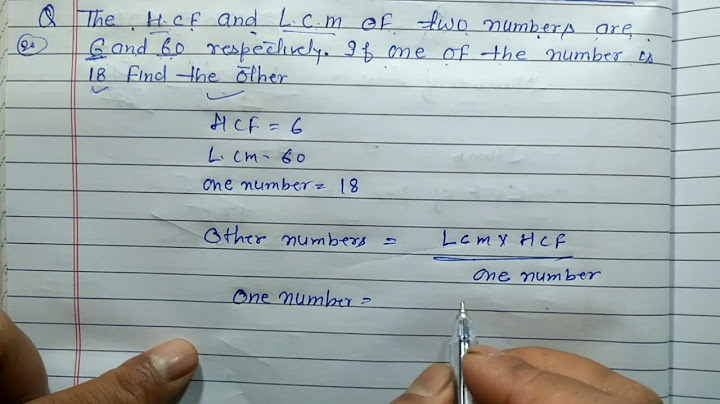 Q The H.C.F and L.C.m of two numbers are
6 and 60 respectively. If one of the number is
18 Find the other
HCF = 6
L.Cm = 60
one number = 18
Other numbers = LCm x HCF
one number
One number =